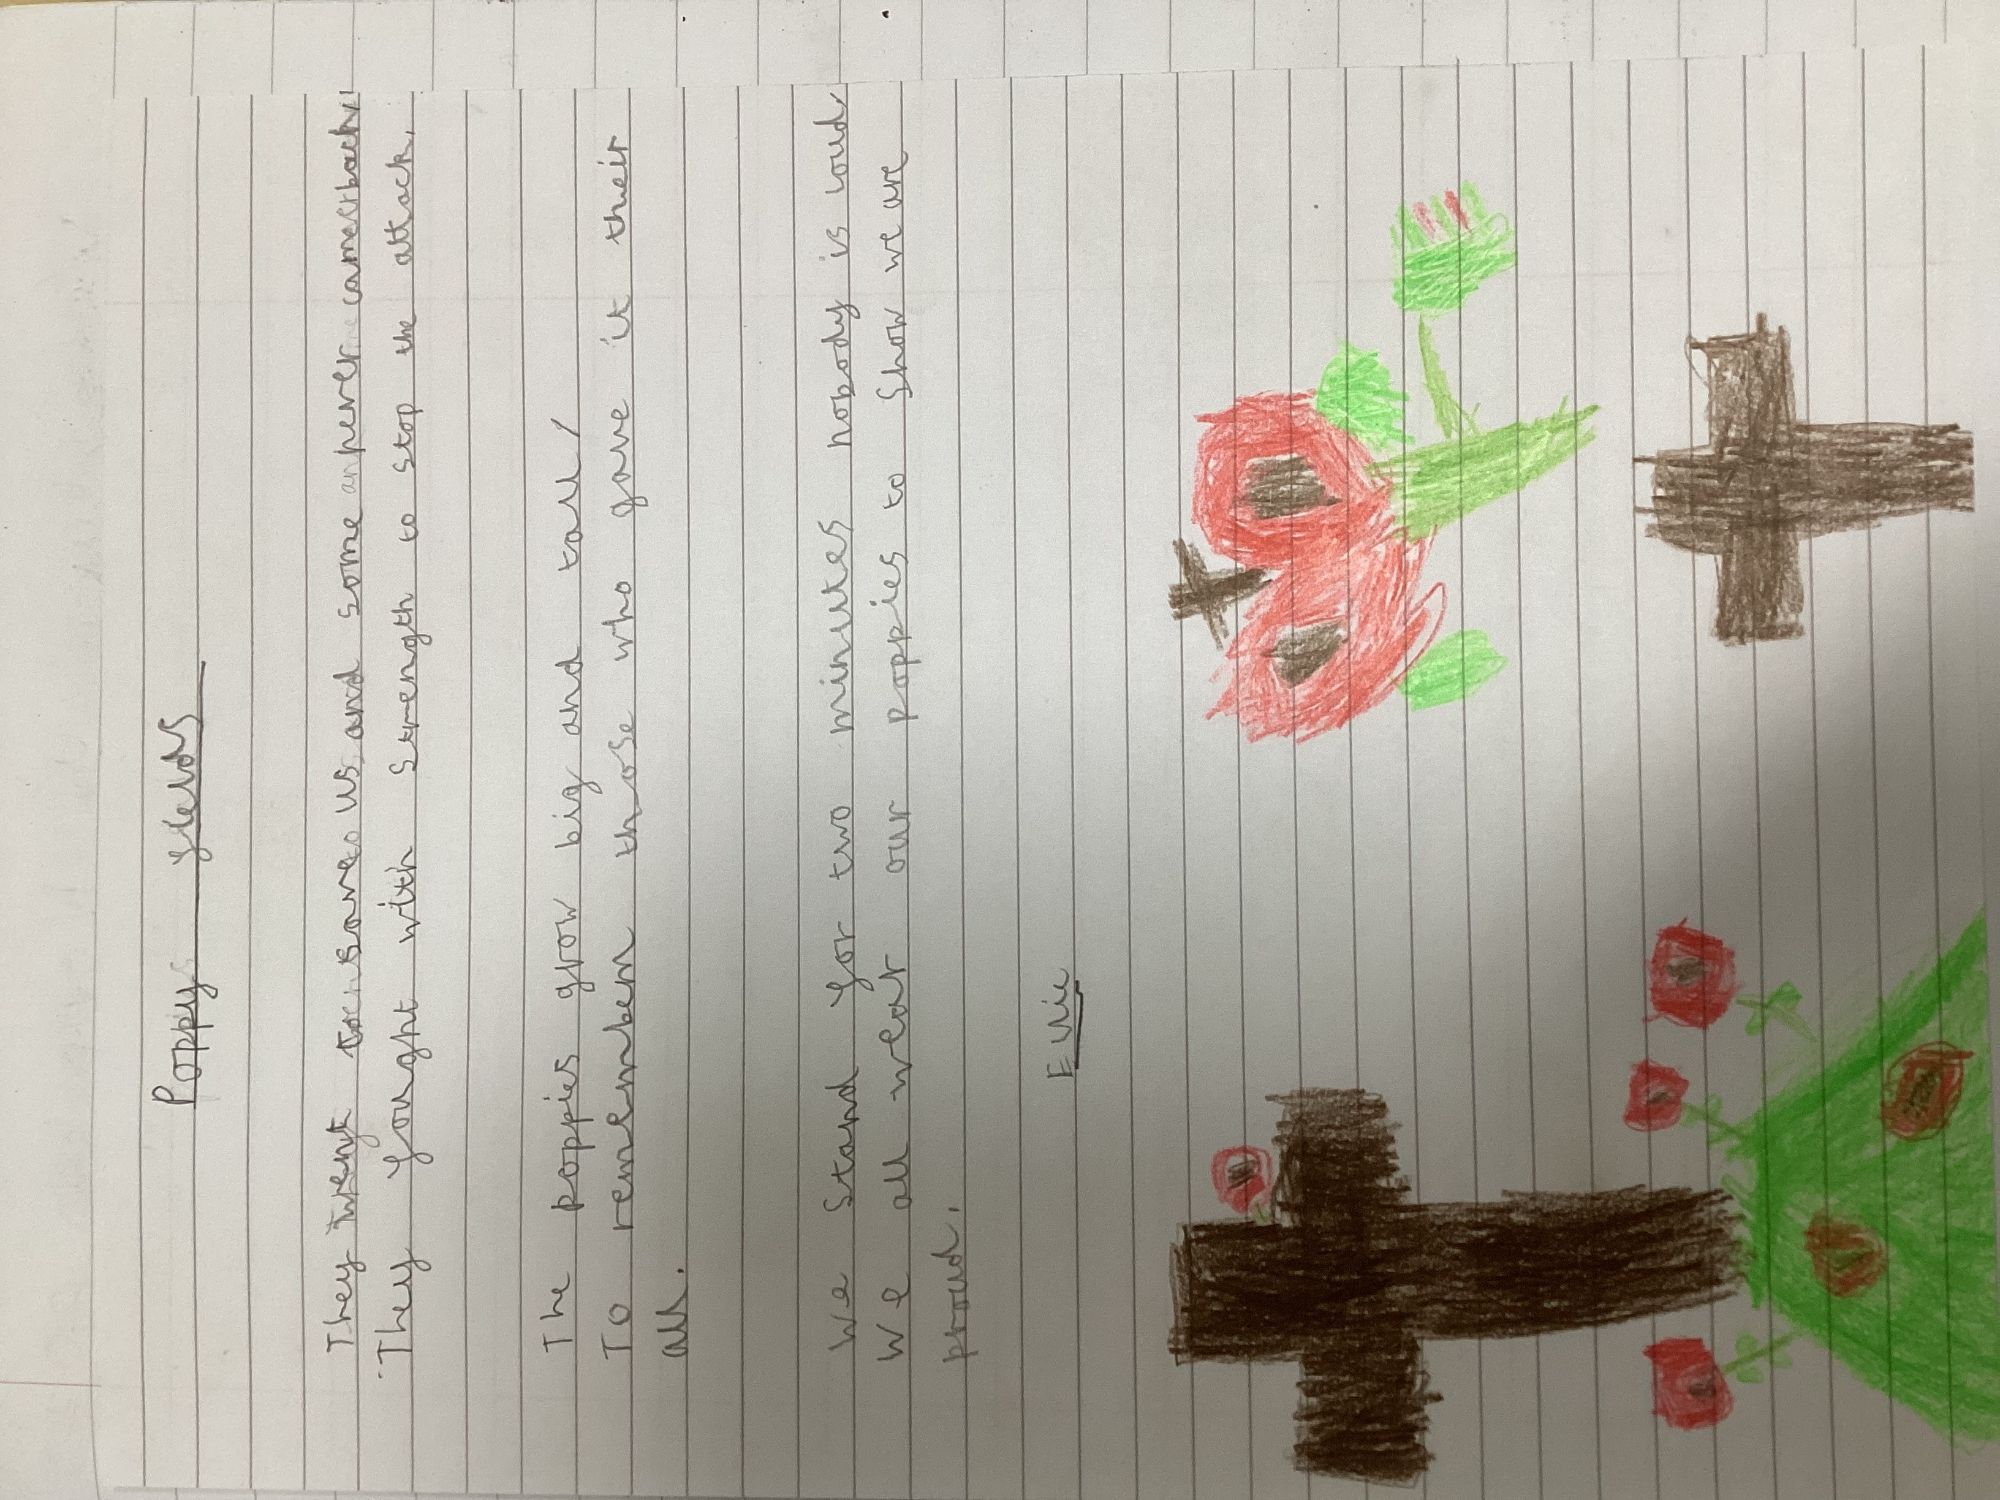 Poppy fields
They went to save us, and some never came back,
They fought with strength to stop the attack.
The poppies grow big and tall,
To remember those who gave it their
all.
We stand for two minutes nobody is loud,
We all wear our poppies to show we are
proud.
Evie